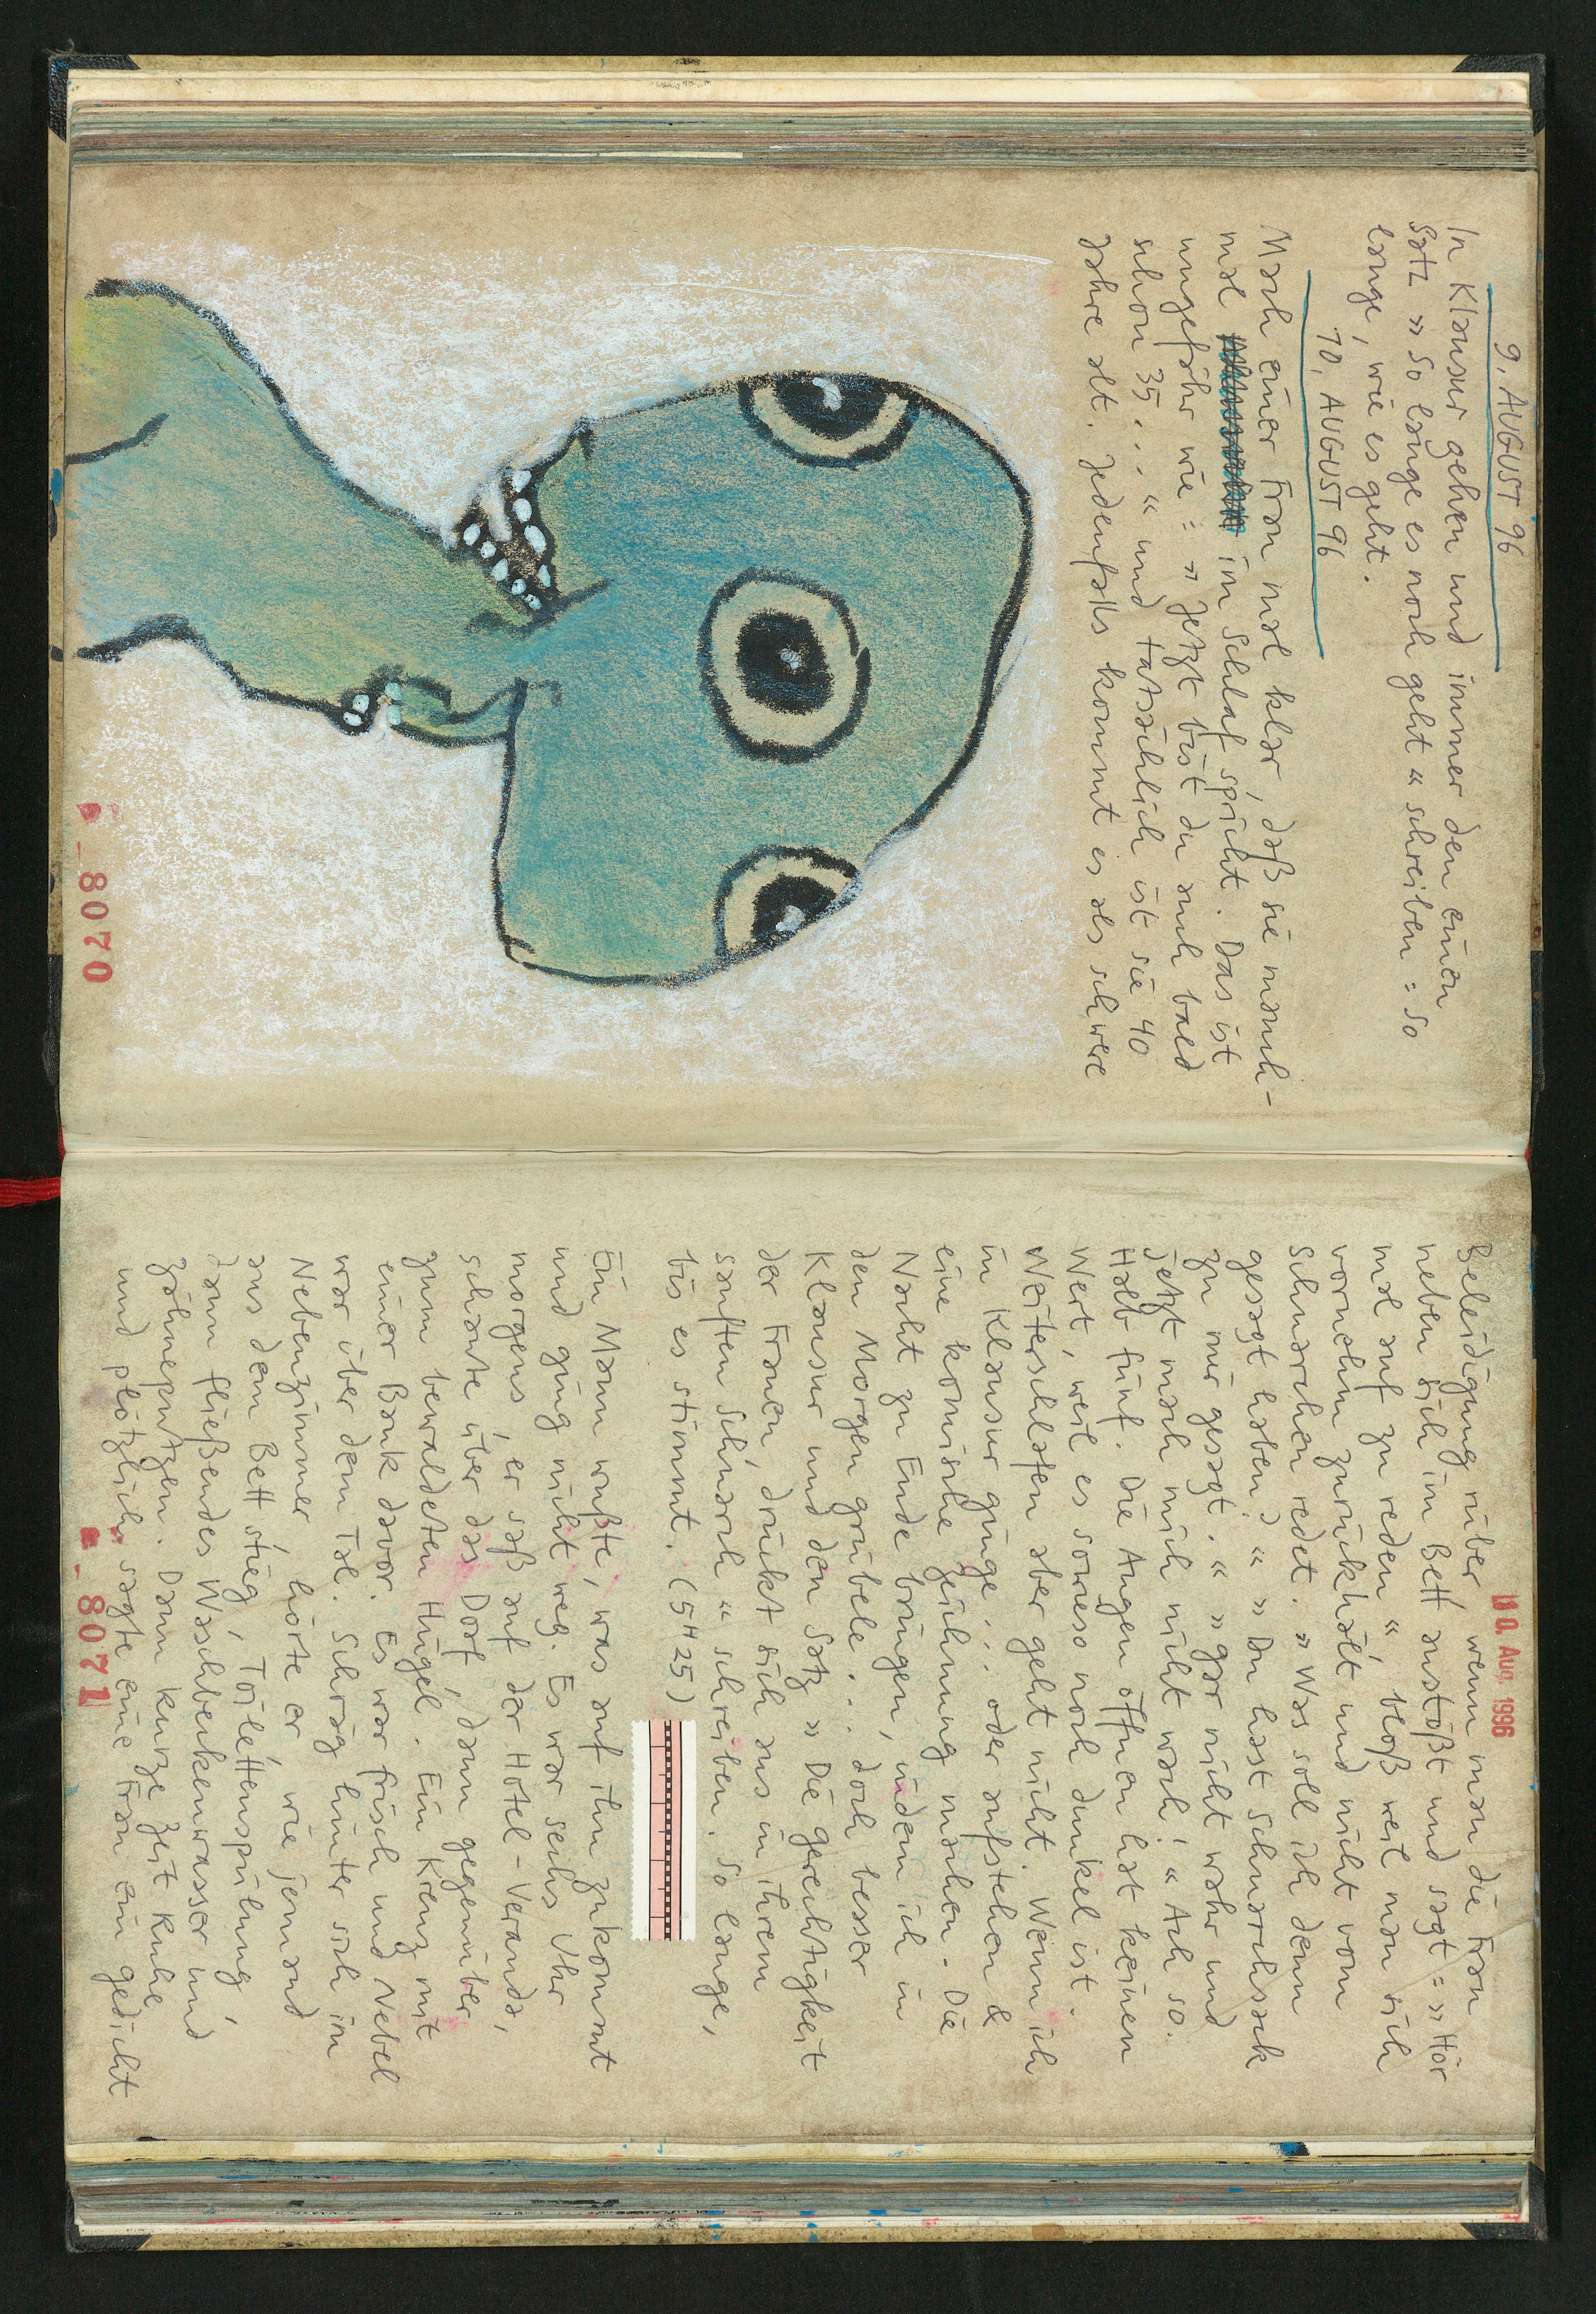 9. AUGUST 96
In Klausur gehen und immer den einen
Satz »So lange es noch geht« schreiben: So
lange, wie es geht.
10. AUGUST 96
Mach einer Frau mal klar, daß sie manch-
mal im Schlaf spricht. Das ist
ungefähr wie: »Jetzt bist du auch bald
schon 35...« und tatsächlich ist sie 40
Jahre alt. Jedenfalls kommt es als schwere
8070
10. Aug. 1996
Beleidigung rüber, wenn man die Frau
neben sich im Bett anstößt und sagt: »Hör
mal auf zu reden«, bloß weil man sich
vornehm zurückhält und nicht vom
Schnarchen redet. »Was soll ich denn
gesagt haben?« »Du hast Schnarchsack
zu mir gesagt.« »Gar nicht wahr und
jetzt mach mich nicht wach!« Ach so.
Halb fünf. Die Augen öffnen hat keinen
Wert, weil es sowieso noch dunkel ist.
Weiterschlafen aber geht nicht. Wenn ich
in Klausur ginge... oder aufstehen &
eine komische Zeichnung machen. Die
Nacht zu Ende bringen, indem ich in
den Morgen grübele... doch besser
Klausur und den Satz »Die Gerechtigkeit
der Frauen, drückt sich aus in ihrem
sanften Schnarch« schreiben. So lange,
bis es stimmt. (5H25)
Ein Mann wußte, was auf ihn zukommt
und ging nicht weg. Es war sechs Uhr
morgens, er saß auf der Hotel-Veranda,
schaute über das Dorf, dann gegenüber
zum bewaldeten Hügel. Ein Kreuz mit
einer Bank davor. Es war frisch und Nebel
war über dem Tal. Schräg hinter sich im
Nebenzimmer, hörte er, wie jemand
aus dem Bett stieg, Toilettenspülung,
dann fließendes Waschbeckenwasser und
Zähneputzen. Dann kurze Zeit Ruhe
und plötzlich sagte eine Frau ein Gedicht
8071